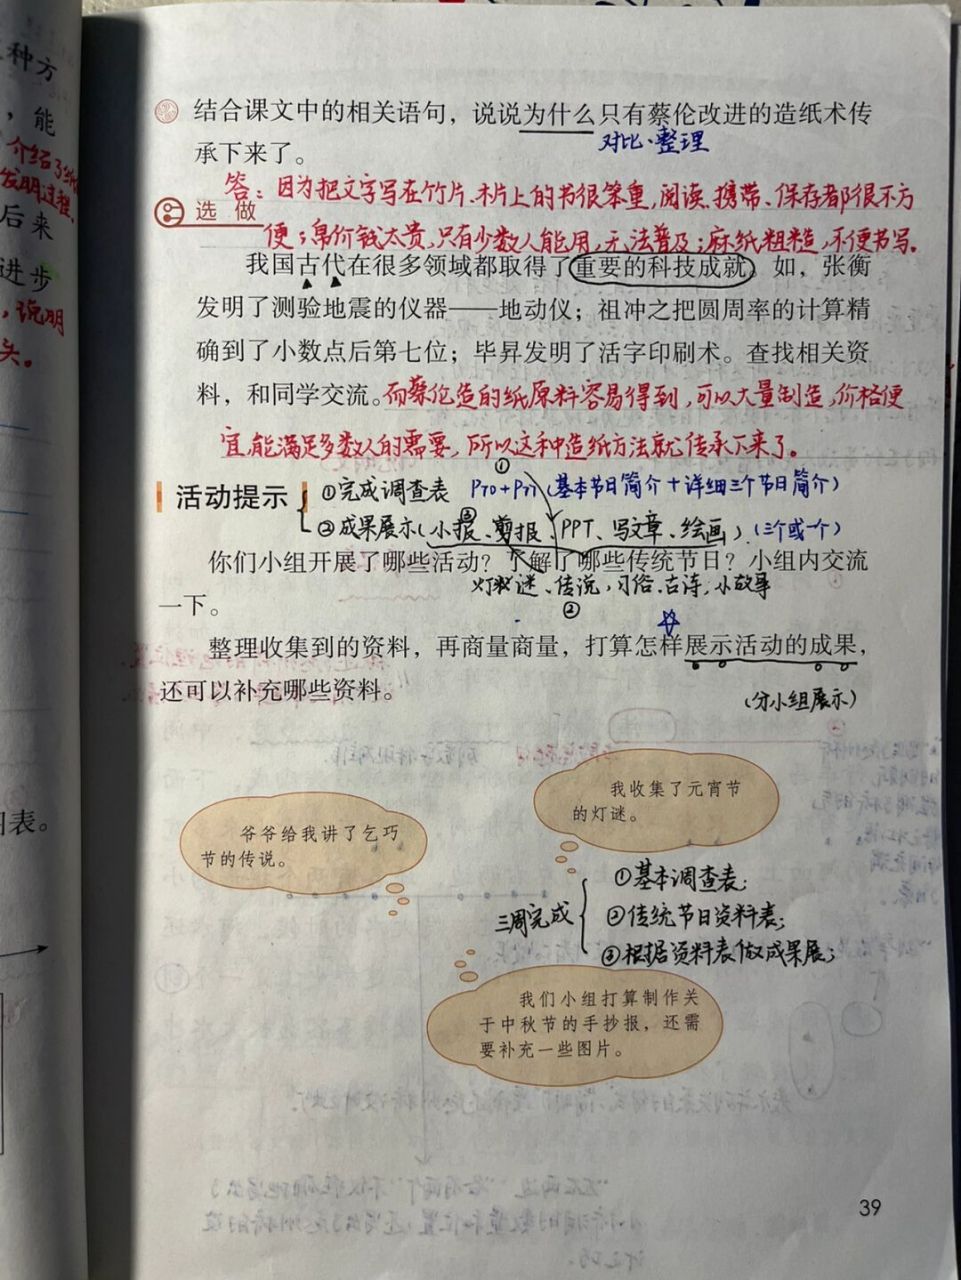 种方
，能
介绍了纸
发明过程、
后来
进步
，说明
头。
表。
结合课文中的相关语句，说说为什么只有蔡伦改进的造纸术传
承下来了。
对比、整理
答：因为把文字写在竹片、木片上的书很笨重，阅读、携带、保存都很不方
选做
便；帛价钱太贵，只有少数人能用，无法普及；麻纸粗糙，不便书写。
我国古代在很多领域都取得了重要的科技成就。如，张衡
发明了测验地震的仪器——地动仪；祖冲之把圆周率的计算精
确到了小数点后第七位；毕昇发明了活字印刷术。查找相关资
料，和同学交流。
而蔡伦造的纸原料容易得到，可以大量制造，价格便
宜，能满足多数人的需要，所以这种造纸方法就传承下来了。
活动提示
①完成调查表 P70+P71（基本节日简介+详细三个节日简介）
①
③
②成果展示（小报、剪报、PPT、写文章、绘画）（三个或一个）
你们小组开展了哪些活动？了解了哪些传统节日？小组内交流
一下。
灯谜、传说，习俗、古诗，小故事
②
整理收集到的资料，再商量商量，打算怎样展示活动的成果，
还可以补充哪些资料。
（分小组展示）
我收集了元宵节
的灯谜。
爷爷给我讲了乞巧
节的传说。
三周完成
①基本调查表；
②传统节日资料表；
③根据资料表做成果展；
我们小组打算制作关
于中秋节的手抄报，还需
要补充一些图片。
39